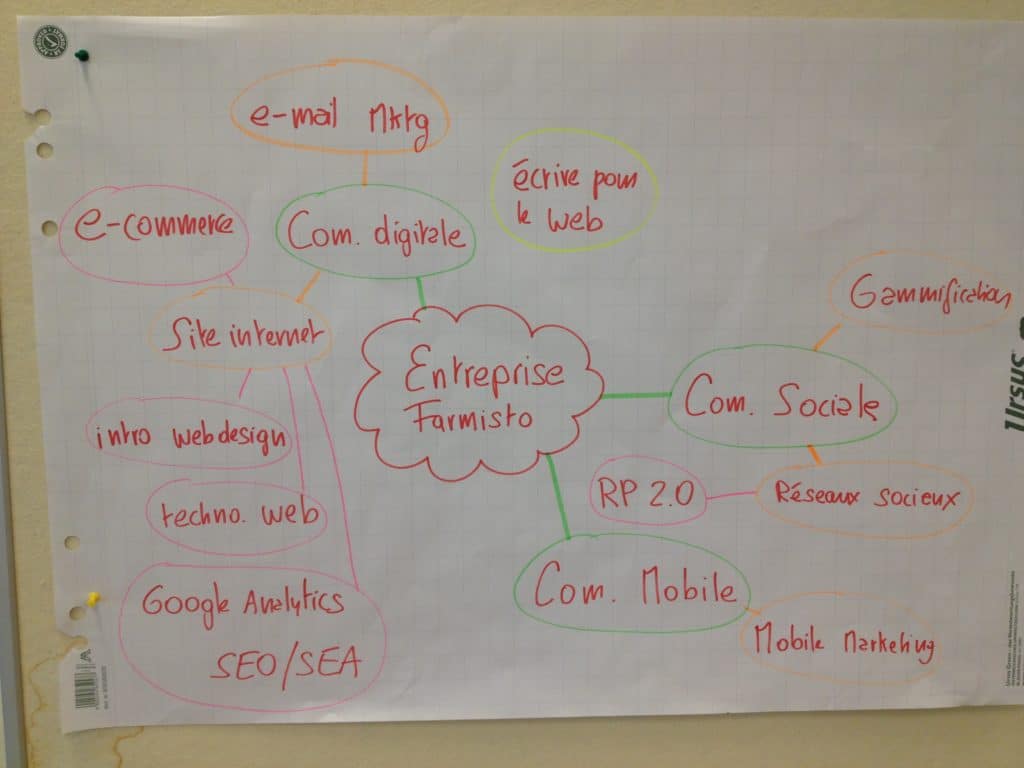 e-mail Mktg
écrire pour
le web
e-commerce
Com. digitale
Site internet
Gammification
Entreprise
Farmisto
Com. Sociale
intro webdesign
RP 2.0
Réseaux socieux
techno. web
Com. Mobile
Google Analytics
SEO/SEA
Mobile Marketing
Ursus